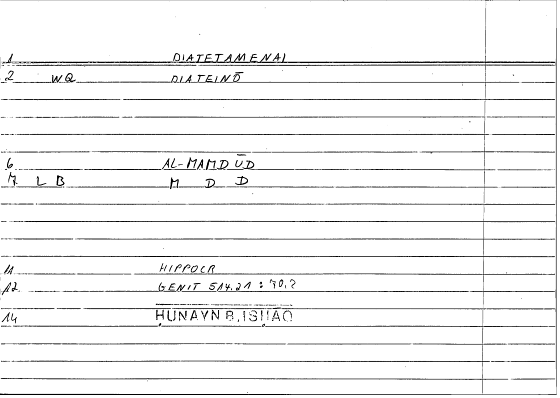 1 DIATETAMENAI
2 WQ DIATEINŌ
6 AL-MAMDŪD
7 L B M D D
11 HIPPOCR
12 GENIT 514.21 :
14 ḤUNAYN B. ISḤĀQ